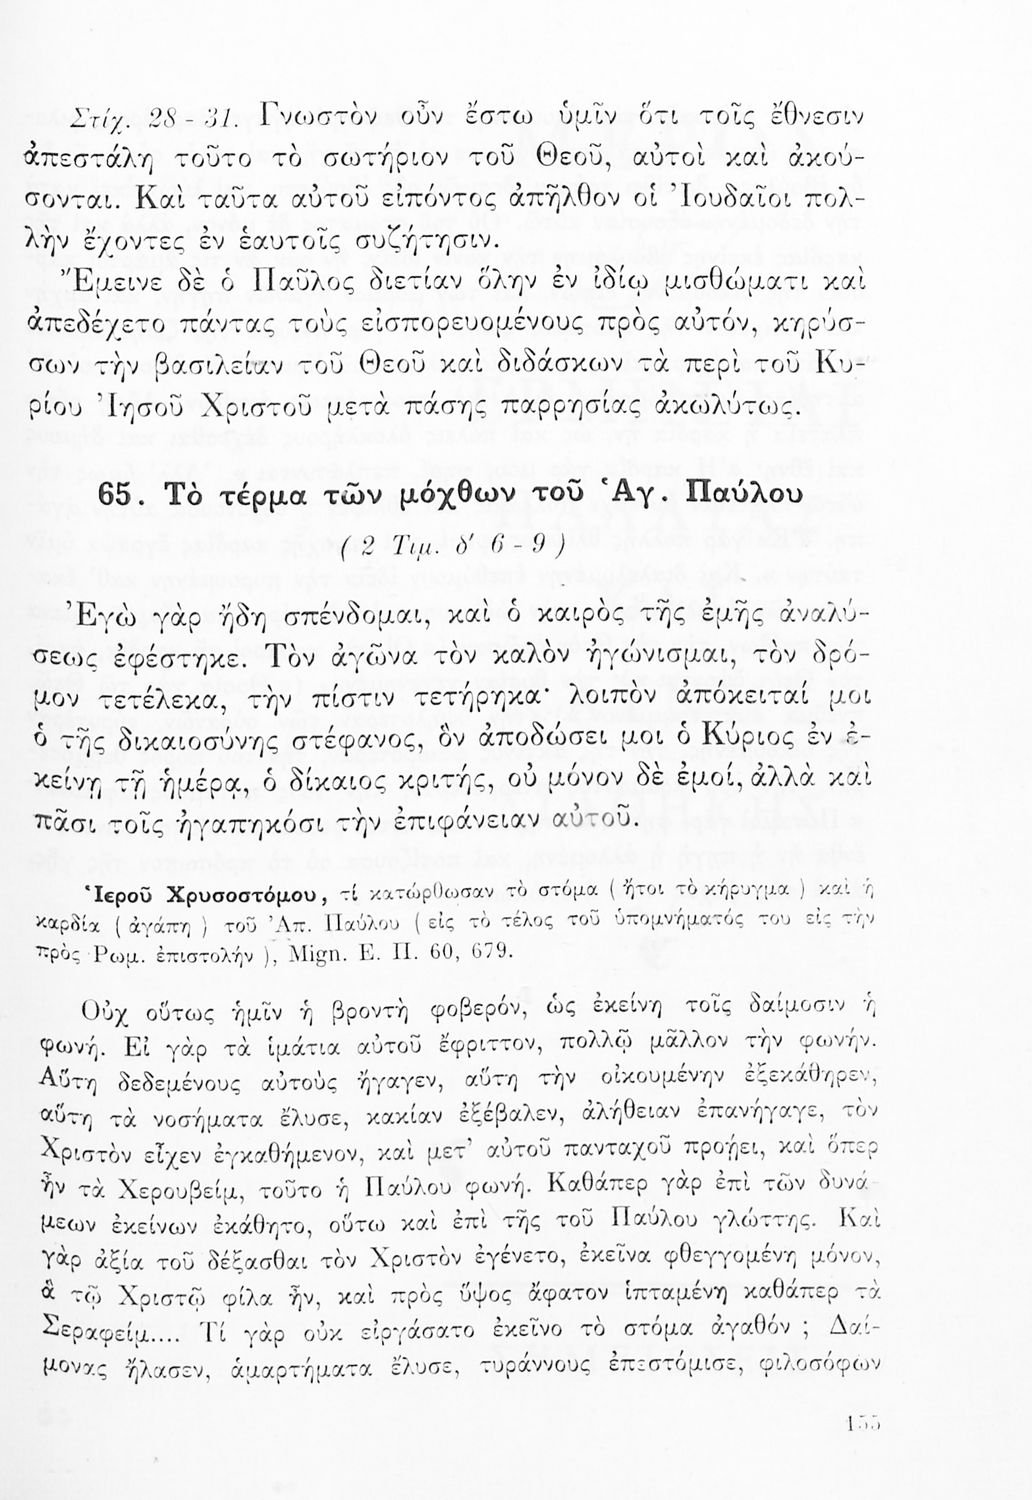 Στίχ. 28 - 31. Γνωστὸν οὖν ἔστω ὑμῖν ὅτι τοῖς ἔθνεσιν
ἀπεστάλη τοῦτο τὸ σωτήριον τοῦ Θεοῦ, αὐτοὶ καὶ ἀκού-
σονται. Καὶ ταῦτα αὐτοῦ εἰπόντος ἀπῆλθον οἱ Ἰουδαῖοι πολ-
λὴν ἔχοντες ἐν ἑαυτοῖς συζήτησιν.
Ἔμεινε δὲ ὁ Παῦλος διετίαν ὅλην ἐν ἰδίῳ μισθώματι καὶ
ἀπεδέχετο πάντας τοὺς εἰσπορευομένους πρὸς αὐτόν, κηρύσ-
σων τὴν βασιλείαν τοῦ Θεοῦ καὶ διδάσκων τὰ περὶ τοῦ Κυ-
ρίου Ἰησοῦ Χριστοῦ μετὰ πάσης παρρησίας ἀκωλύτως.
65. Τὸ τέρμα τῶν μόχθων τοῦ Ἁγ. Παύλου
( 2 Τιμ. δ' 6 - 9 )
Ἐγὼ γὰρ ἤδη σπένδομαι, καὶ ὁ καιρὸς τῆς ἐμῆς ἀναλύ-
σεως ἐφέστηκε. Τὸν ἀγῶνα τὸν καλὸν ἠγώνισμαι, τὸν δρό-
μον τετέλεκα, τὴν πίστιν τετήρηκα· λοιπὸν ἀπόκειταί μοι
ὁ τῆς δικαιοσύνης στέφανος, ὃν ἀποδώσει μοι ὁ Κύριος ἐν ἐ-
κείνῃ τῇ ἡμέρᾳ, ὁ δίκαιος κριτής, οὐ μόνον δὲ ἐμοί, ἀλλὰ καὶ
πᾶσι τοῖς ἠγαπηκόσι τὴν ἐπιφάνειαν αὐτοῦ.
Ἱεροῦ Χρυσοστόμου, τί κατώρθωσαν τὸ στόμα ( ἤτοι τὸ κήρυγμα ) καὶ ἡ
καρδία ( ἀγάπη ) τοῦ Ἀπ. Παύλου ( εἰς τὸ τέλος τοῦ ὑπομνήματός του εἰς τὴν
πρὸς Ρωμ. ἐπιστολήν ), Mign. Ε. Π. 60, 679.
Οὐχ οὕτως ἡμῖν ἡ βροντὴ φοβερόν, ὡς ἐκείνη τοῖς δαίμοσιν ἡ
φωνή. Εἰ γὰρ τὰ ἱμάτια αὐτοῦ ἔφριττον, πολλῷ μᾶλλον τὴν φωνήν.
Αὕτη δεδεμένους αὐτοὺς ἤγαγεν, αὕτη τὴν οἰκουμένην ἐξεκάθηρεν,
αὕτη τὰ νοσήματα ἔλυσε, κακίαν ἐξέβαλεν, ἀλήθειαν ἐπανήγαγε, τὸν
Χριστὸν εἶχεν ἐγκαθήμενον, καὶ μετ' αὐτοῦ πανταχοῦ προῄει, καὶ ὅπερ
ἦν τὰ Χερουβείμ, τοῦτο ἡ Παύλου φωνή. Καθάπερ γὰρ ἐπὶ τῶν δυνά-
μεων ἐκείνων ἐκάθητο, οὕτω καὶ ἐπὶ τῆς τοῦ Παύλου γλώττης. Καὶ
γὰρ ἀξία τοῦ δέξασθαι τὸν Χριστὸν ἐγένετο, ἐκεῖνα φθεγγομένη μόνον,
ἃ τῷ Χριστῷ φίλα ἦν, καὶ πρὸς ὕψος ἄφατον ἱπταμένη καθάπερ τὰ
Σεραφείμ.... Τί γὰρ οὐκ εἰργάσατο ἐκεῖνο τὸ στόμα ἀγαθόν ; Δαί-
μονας ἤλασεν, ἁμαρτήματα ἔλυσε, τυράννους ἐπεστόμισε, φιλοσόφων
155